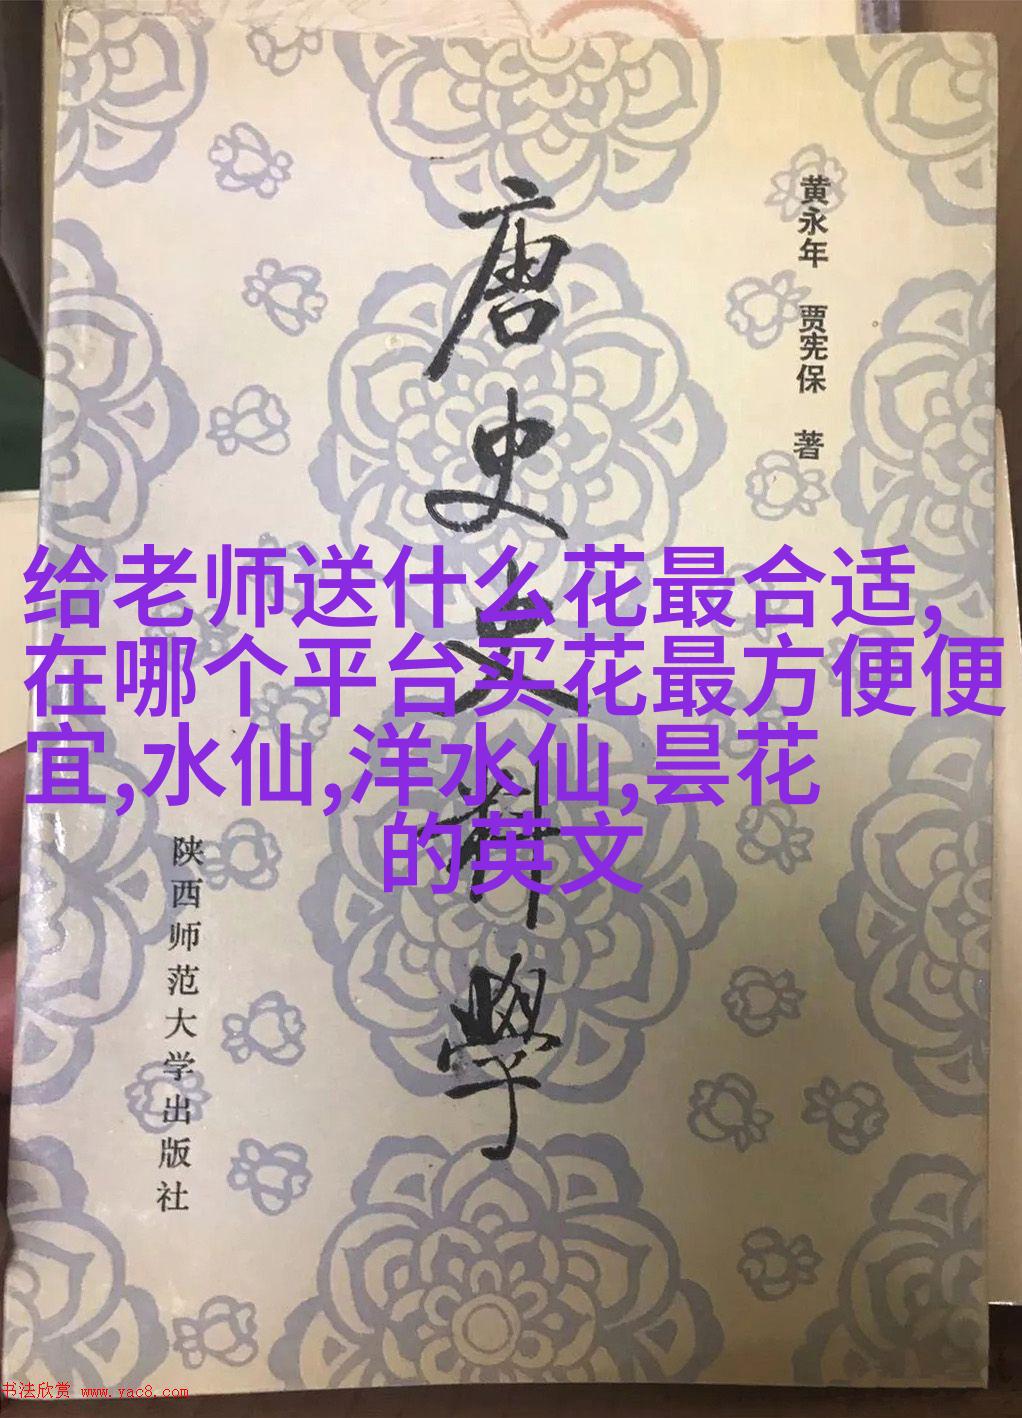 黄永年 贾宪保 著
唐史史料学
给老师送什么花最合适,
在哪个平台买花最方便便
宜,水仙,洋水仙,昙花
的英文
陕西师范大学出版社
书法欣赏 www.yac8.com